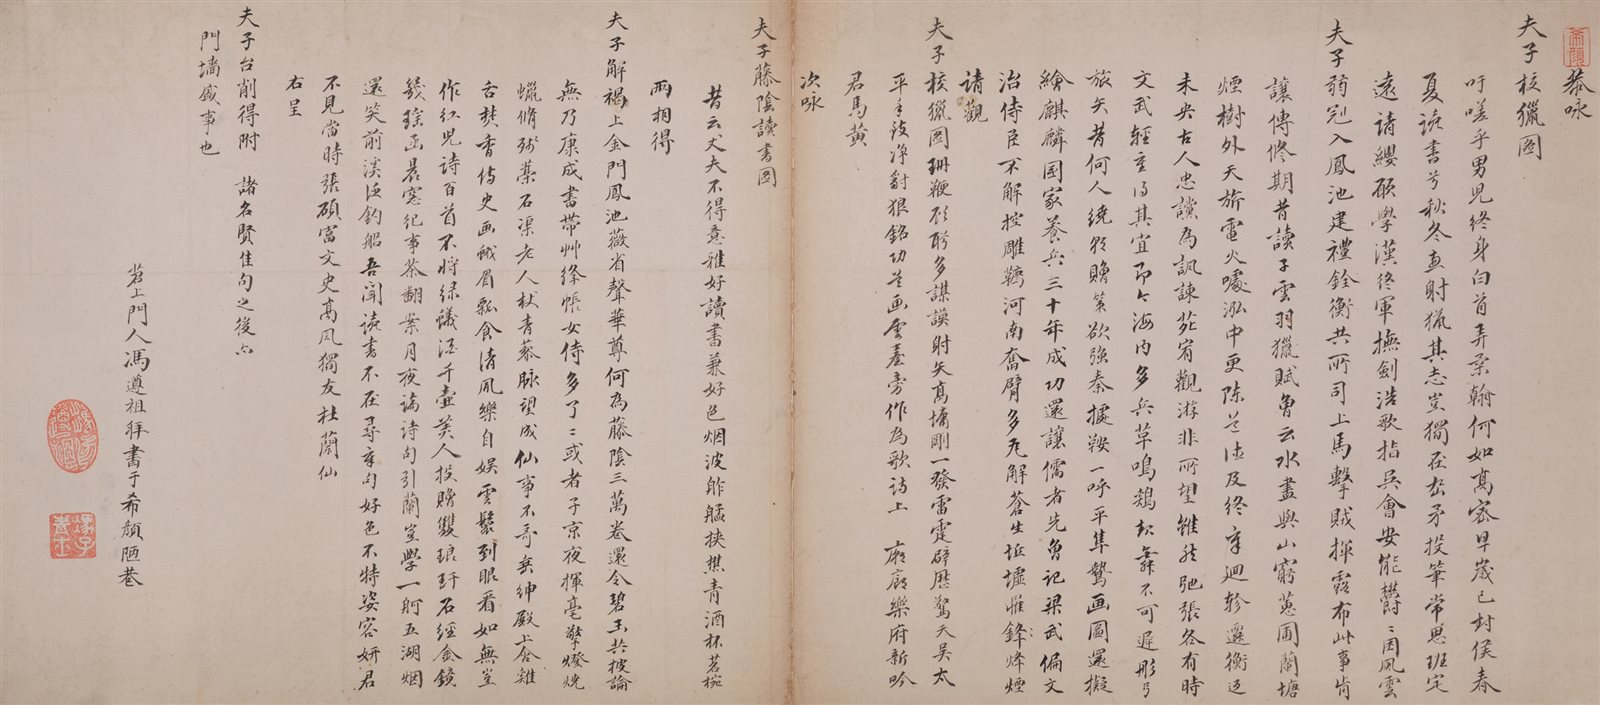 恭咏
夫子校獵圖
吁嗟乎男兒終身白首弄柔翰何如高密早歲已封侯春
夏讀書兮秋冬血射猟其志豈獨在矛投筆常思班定
遠請纓願學漢終軍撫劍浩歌指吳會安能鬱〻困風雲
夫子弱冠入鳳池建禮銓衡共所司上馬擊賊揮露布此事肯
讓傅修期昔讀子雲羽獵賦魯云水畫與山窮蕙圃蘭塘
煙樹外天旂電火噓泓中更陳道德及終章迴軫還衡過
未央古人忠讜為諷諫苑宥觀游非所望雖然弛張各有時
文武輕重得其宜即今海內多兵草鳴鷄起舞不可遲彤弓
旅矢昔何人繞朝贈策欲強秦據鞍一呼平隼鷙画圖還擬
繪麒麟國家養兵三十年成功還讓儒者先魯記梁武偏文
治侍臣不解控雕鞿河南奮臂多瓦解蒼生垢墟惟鋒烽煙
請觀
夫子校獵圖珊鞭形弩多謀謨射矢高墉剛一發雷霆辟歷驚天吳太
平手致淨豺狼銘功並画雲臺旁作為歌詩上 廟廊樂府新吟
君馬黃
次咏
夫子藤陰讀書圖
昔云丈夫不得意雅好讀書兼好色烟波舴艋挾樵青酒杯茗椀
兩相得
夫子解褐上金門鳳池薇省聲華尊何為藤陰三萬卷還令碧玉共披論
無乃康成書帶艸絳帳女侍多了〻或者子京夜揮毫擎燈燒
蠟脩殘藁石渠老人杖青藜脉望成仙事不奇垂紳殿上含雞
舌焚香侍史画蛾眉瓢食清風樂自娛雲鬟到眼看如無豈
作紅兒詩百首不將綠蟻酒千壺美人投贈雙琅玕石經金鏡
幾瑤函晨窓紀事茶翻案月夜論詩句引蘭豈學一舸五湖烟
還笑前溪泛釣船吾聞讀書不在尋章句好色不特姿容妍君
不見當時張碩富文史高風獨友杜蘭仙
右呈
夫子台削得附 諸名賢佳句之後亦
門墻盛事也
苕上門人馮遵祖拜書于希顏陋巷